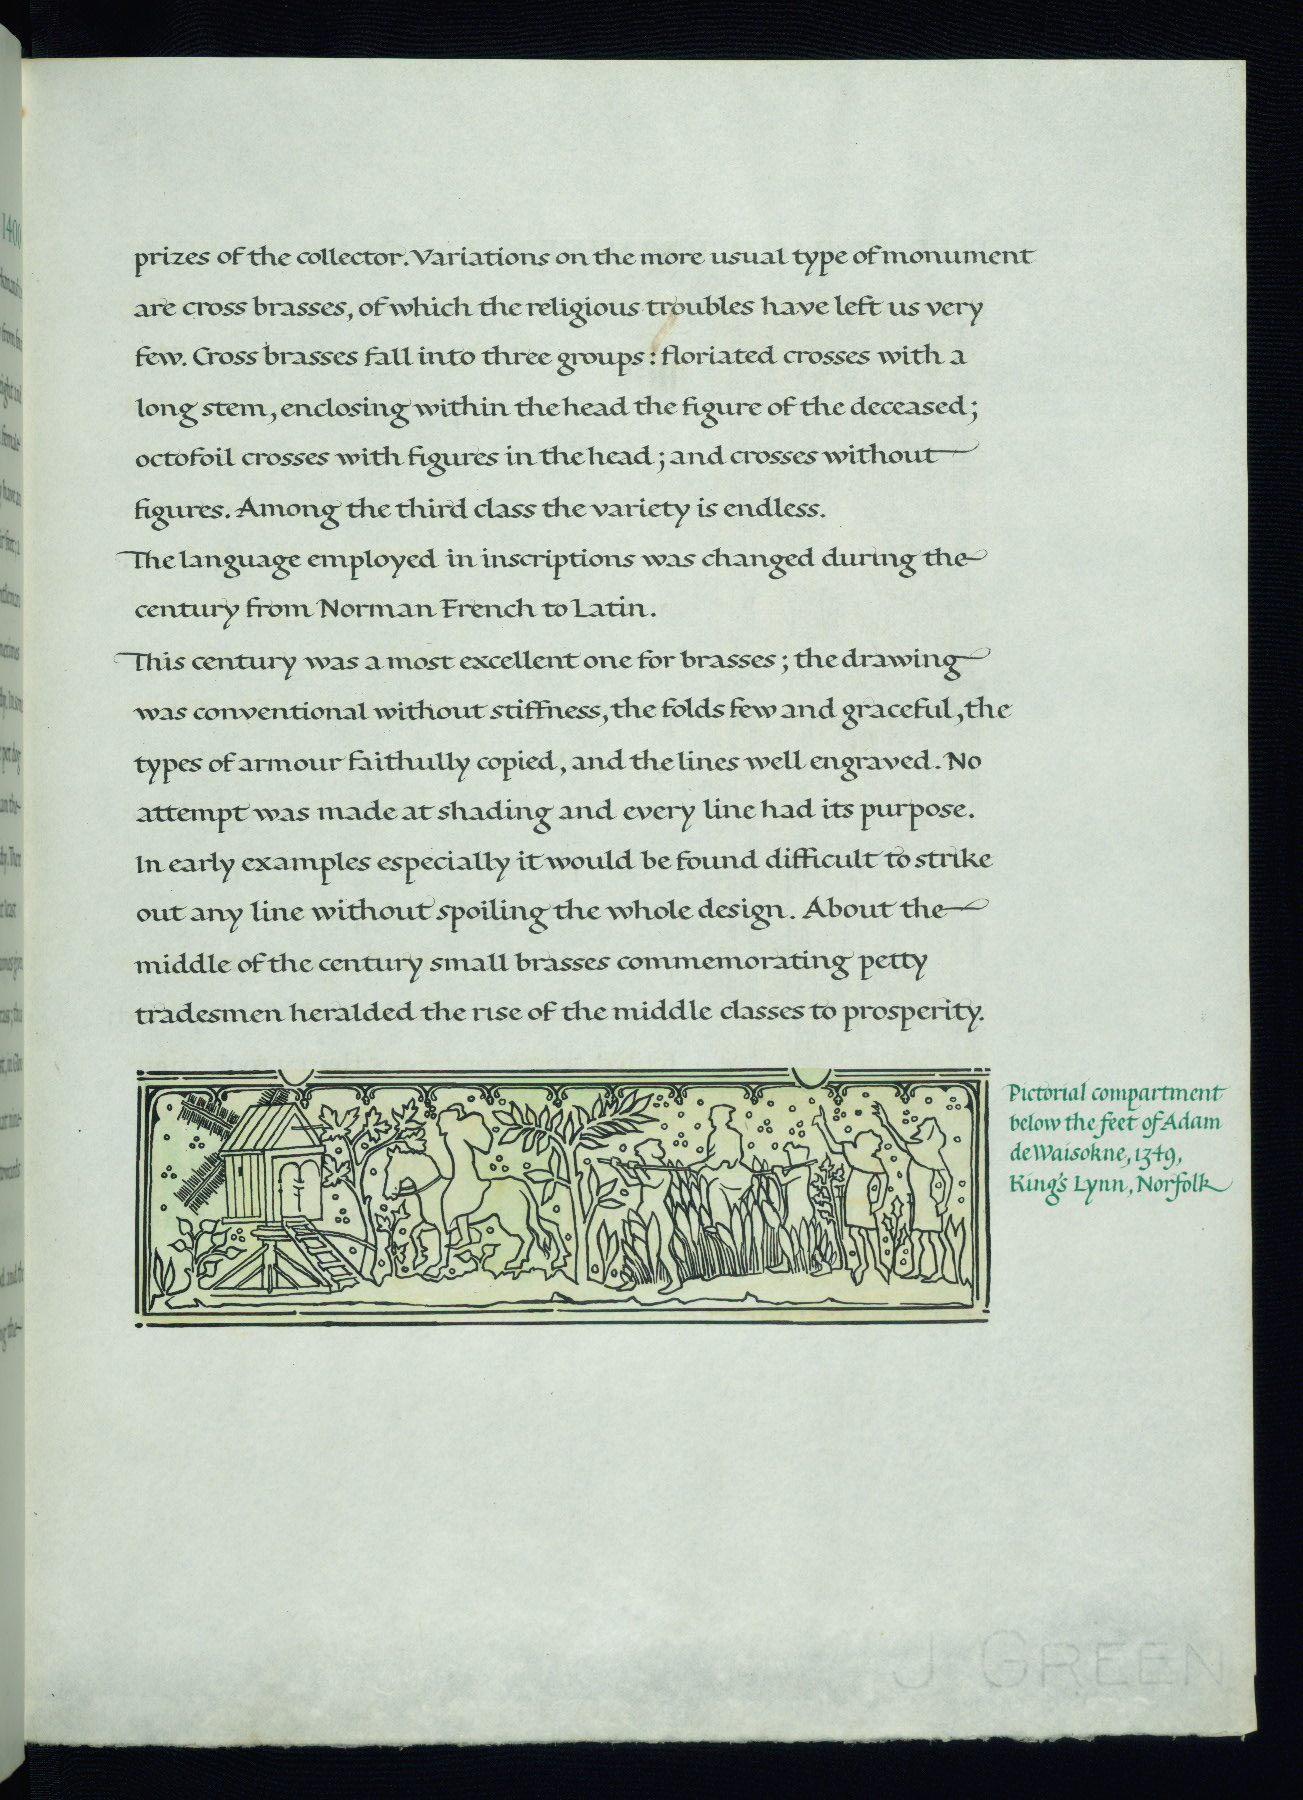 prizes of the collector. Variations on the more usual type of monument
are cross brasses, of which the religious troubles have left us very
few. Cross brasses fall into three groups: floriated crosses with a
long stem, enclosing within the head the figure of the deceased;
octofoil crosses with figures in the head; and crosses without
figures. Among the third class the variety is endless.
The language employed in inscriptions was changed during the
century from Norman French to Latin.
This century was a most excellent one for brasses; the drawing
was conventional without stiffness, the folds few and graceful, the
types of armour faithully copied, and the lines well engraved. No
attempt was made at shading and every line had its purpose.
In early examples especially it would be found difficult to strike
out any line without spoiling the whole design. About the
middle of the century small brasses commemorating petty
tradesmen heralded the rise of the middle classes to prosperity.
Pictorial compartment
below the feet of Adam
de Waisokne, 1349,
King's Lynn, Norfolk
J GREEN
1400